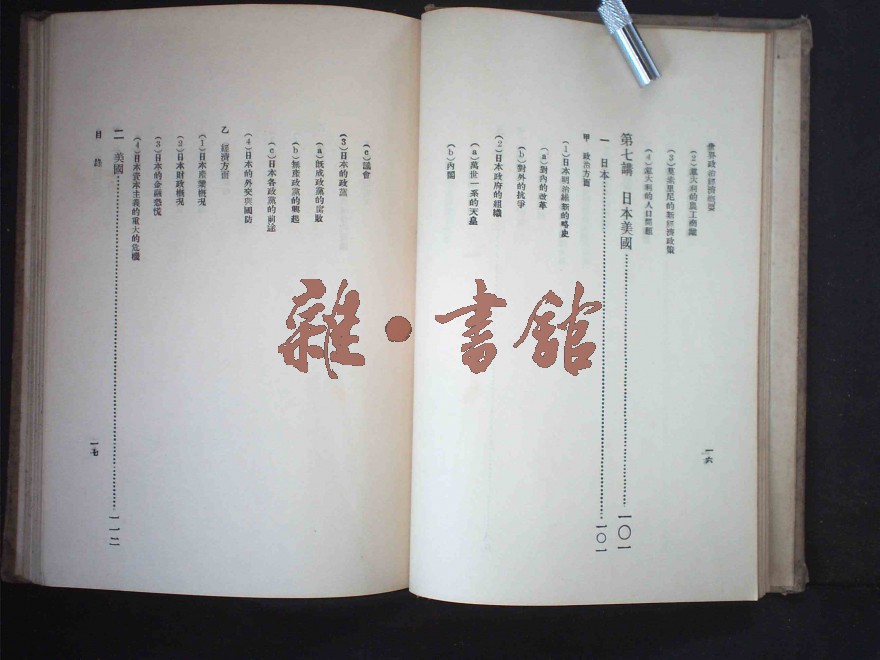 世界政治經濟概要
(2)意大利的農工商業
(3)莫索里尼的新經濟政策
(4)意大利的人口問題
第七講 日本美國 一〇一
一 日本 一〇一
甲 政治方面
(1)日本明治維新的略史
(a)對內的改革
(b)對外的抗爭
(2)日本政府的組織
(a)萬世一系的天皇
(b)內閣
一六
(c)議會
(3)日本的政黨
(a)既成政黨的腐敗
(b)無產政黨的興起
(c)日本各政黨的前途
(4)日本的外交與國防
乙 經濟方面
(1)日本產業概況
(2)日本財政概況
(3)日本的金融恐慌
(4)日本資本主義的重大的危機
二 美國 一一二
目錄
一七
雜·書館